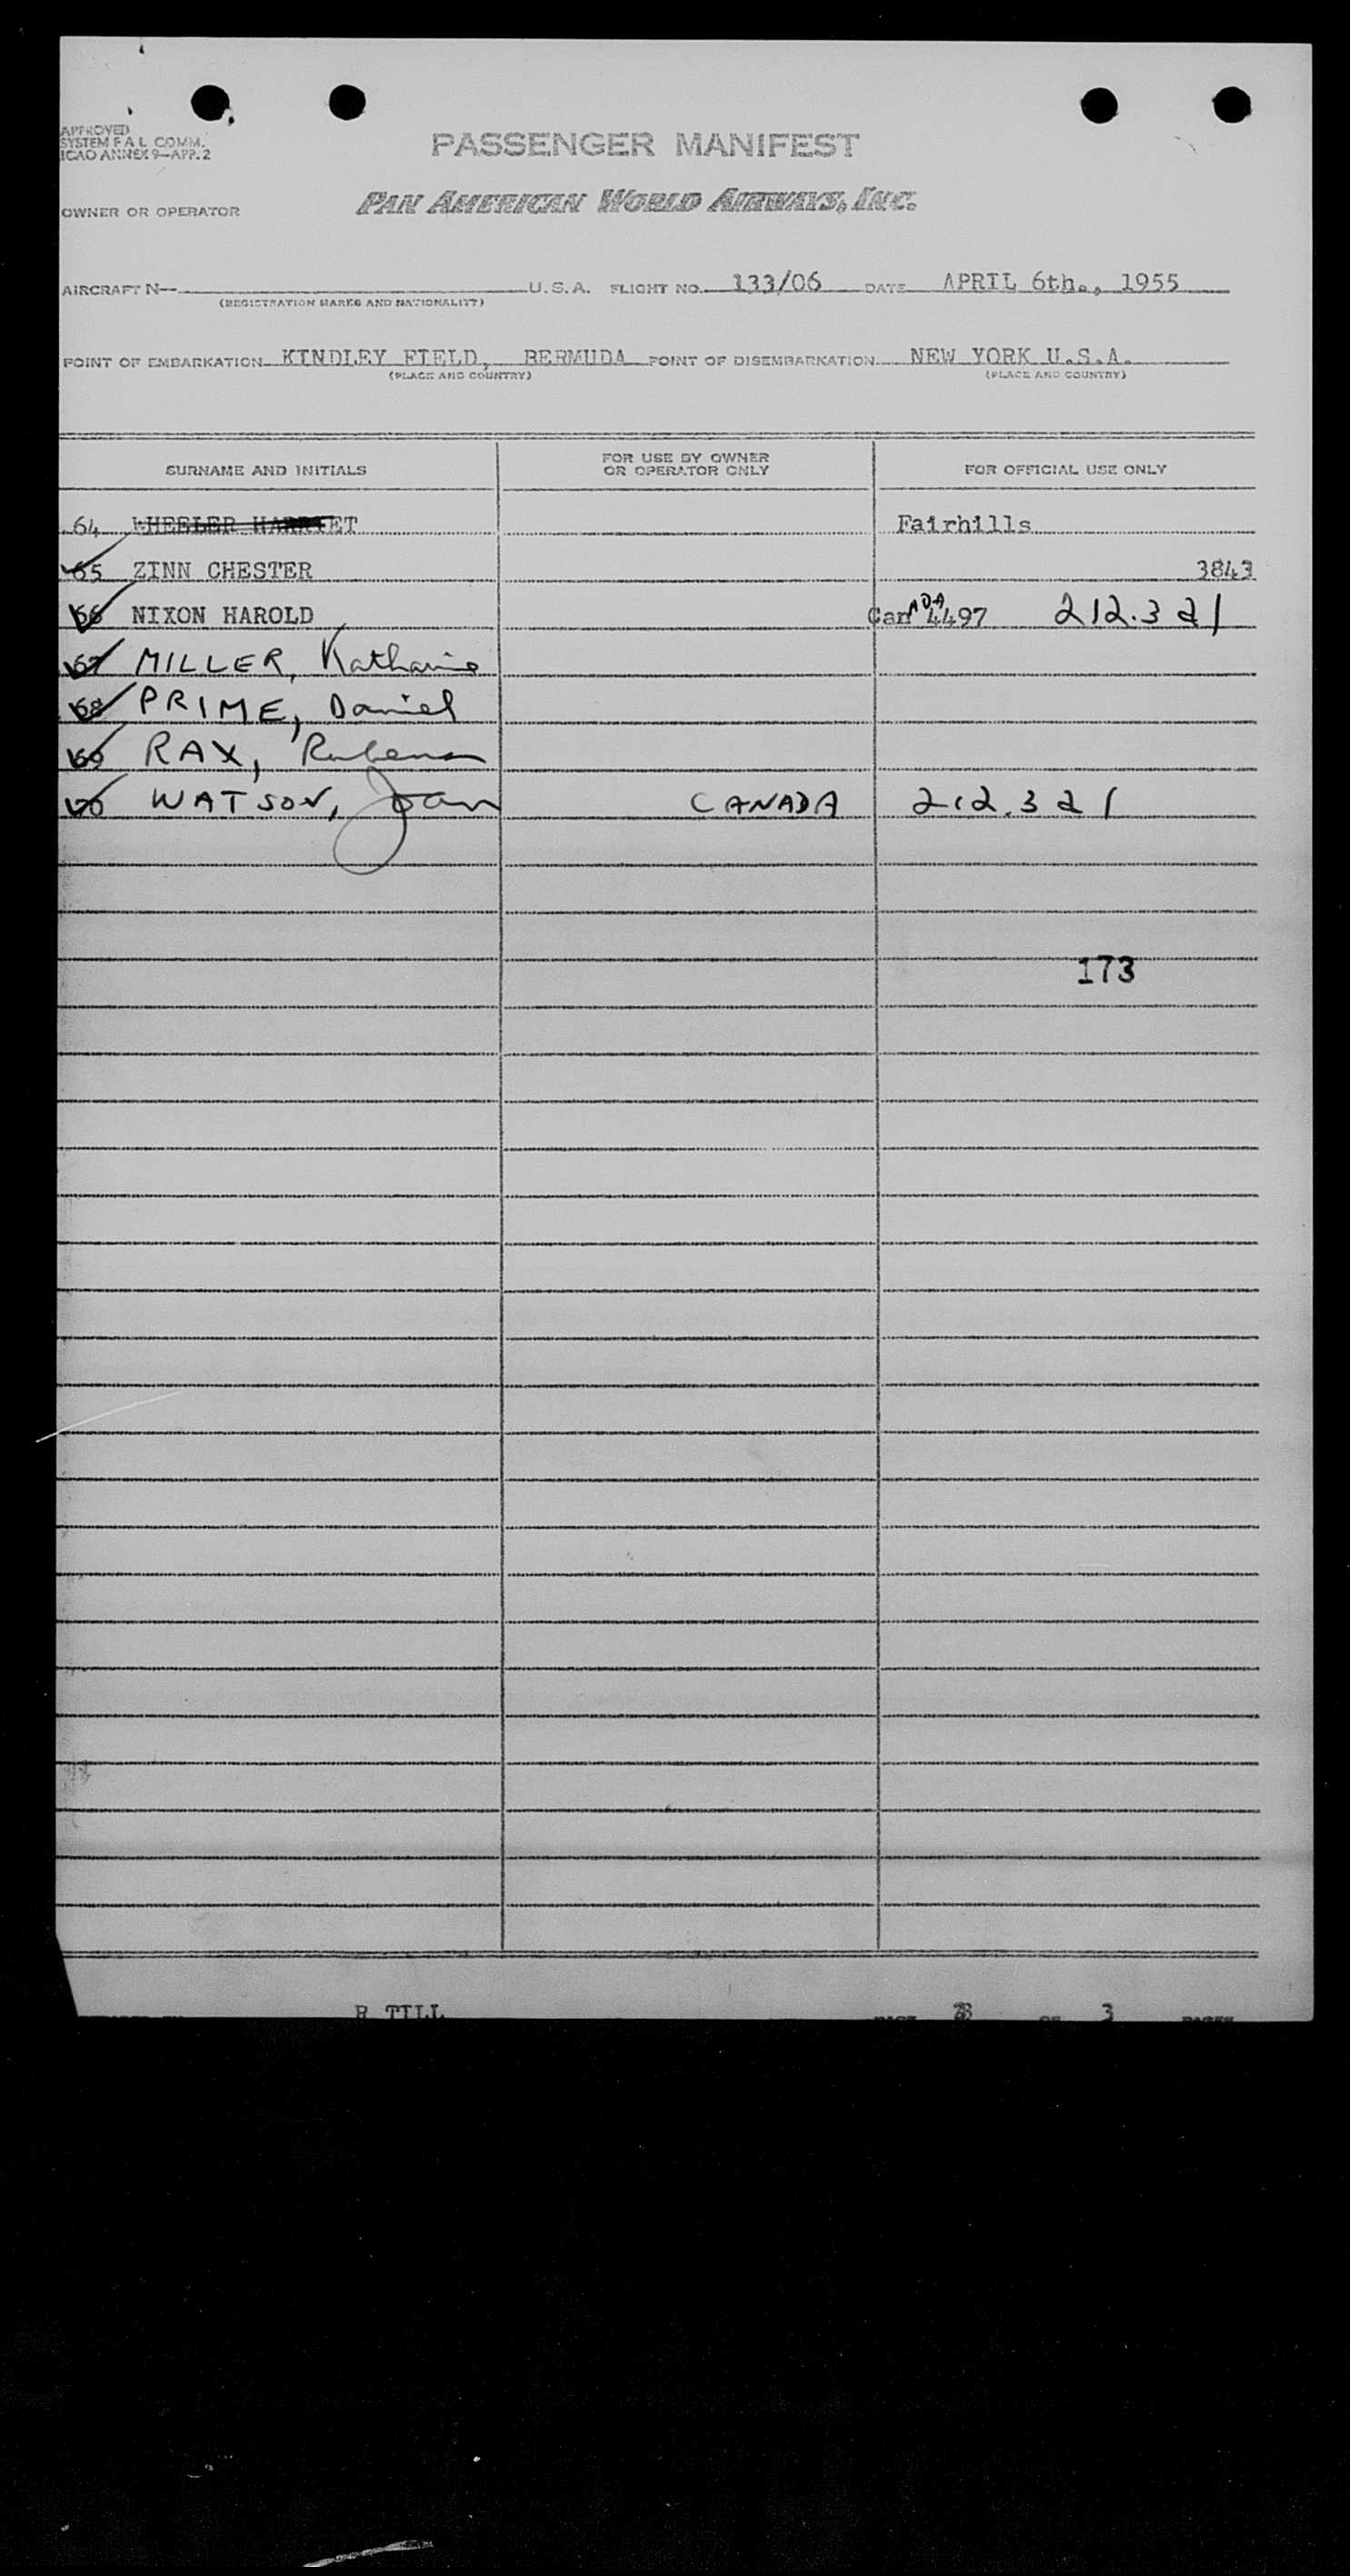 APPROVED
SYSTEM F A L COMM.
ICAO ANNEX 9—APP. 2
PASSENGER MANIFEST
OWNER OR OPERATOR PAN AMERICAN WORLD AIRWAYS, INC.
AIRCRAFT N— U.S.A. FLIGHT NO. 133/06 DATE APRIL 6th., 1955
(REGISTRATION MARKS AND NATIONALITY)
POINT OF EMBARKATION KINDLEY FIELD, BERMUDA POINT OF DISEMBARKATION NEW YORK U.S.A.
(PLACE AND COUNTRY) (PLACE AND COUNTRY)
SURNAME AND INITIALS FOR USE BY OWNER OR OPERATOR ONLY FOR OFFICIAL USE ONLY
64 WHEELER HARRIET Fairhills
65 ZINN CHESTER 3843
66 NIXON HAROLD Can ADA 4497 212.3 21
67 MILLER, Katharine
68 PRIME, Daniel
69 RAX,
70 WATSON, Joan CANADA 212.3 21
173
R TILL PAGE 3 OF 3 PAGES